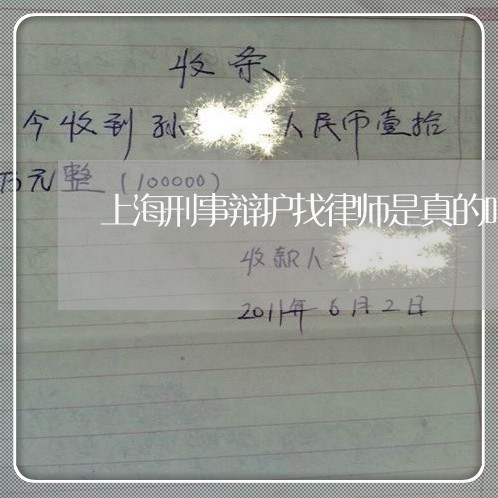 收条
今收到孙 人民币壹拾
万元整（100000）
上海刑事辩护找律师是真的
收款人
2011年6月2日